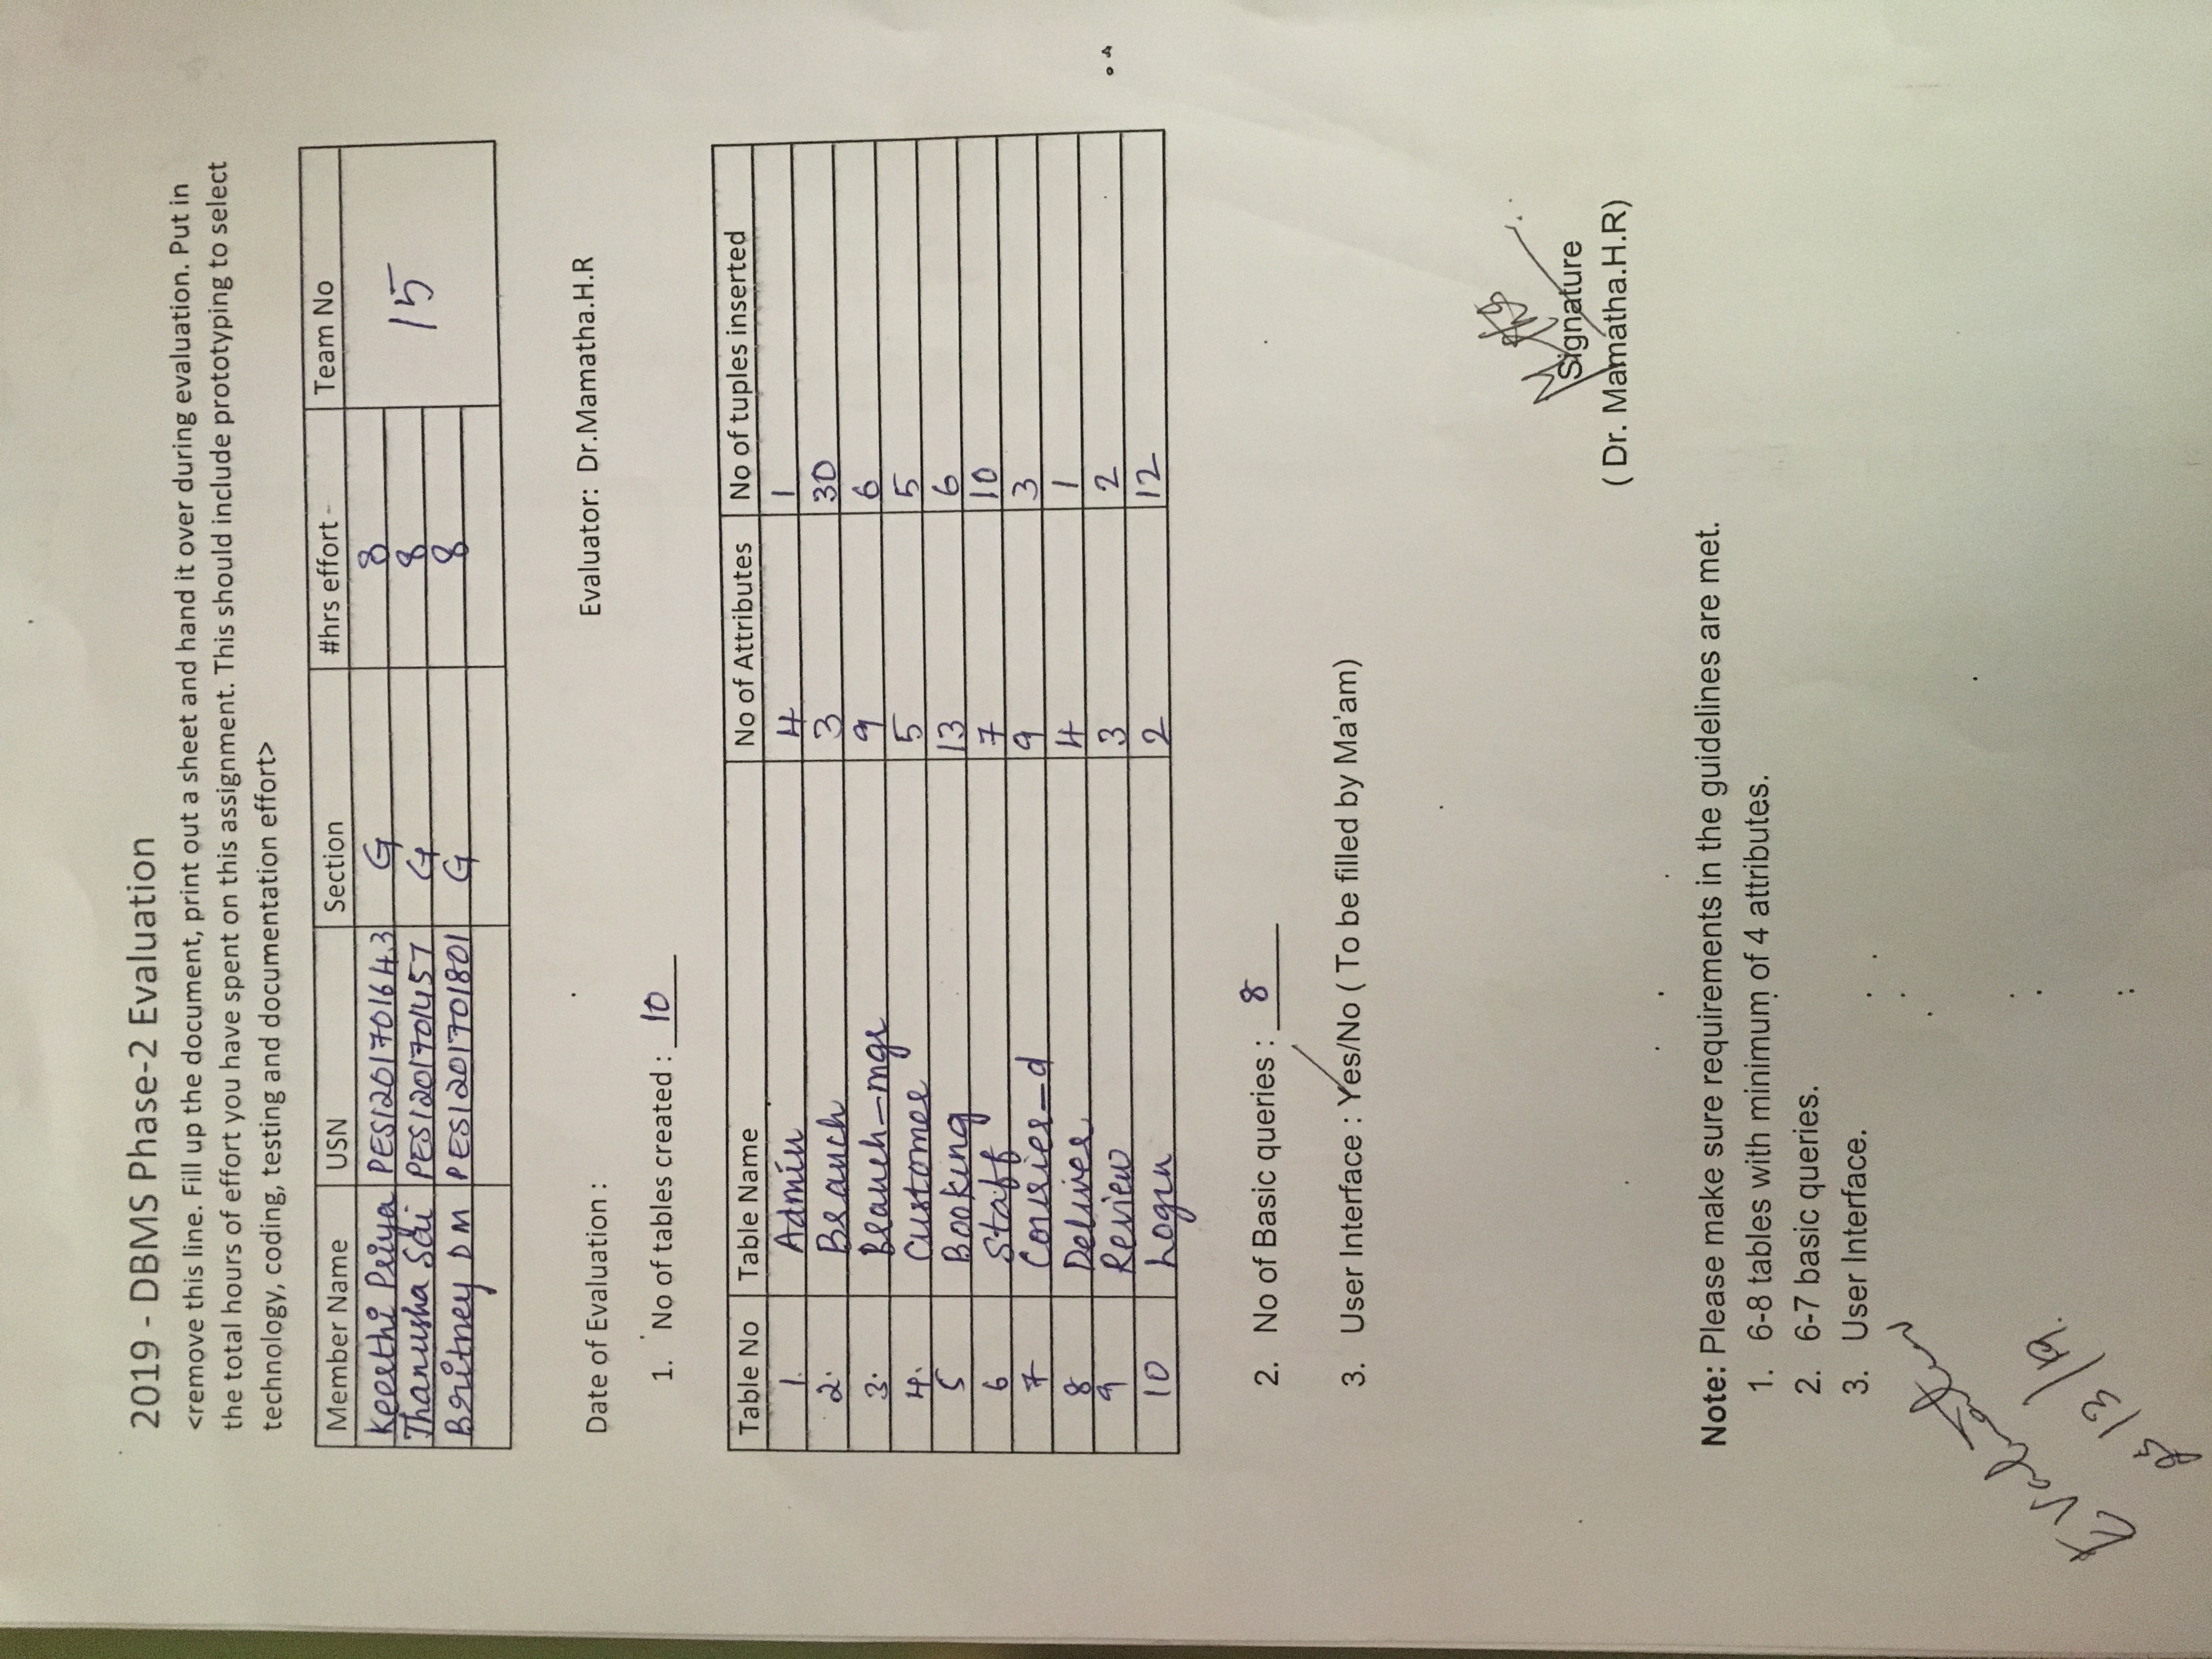 2019 - DBMS Phase-2 Evaluation
<remove this line. Fill up the document, print out a sheet and hand it over during evaluation. Put in
the total hours of effort you have spent on this assignment. This should include prototyping to select
technology, coding, testing and documentation effort>
Member Name USN Section #hrs effort Team No
Keerthi Priya PES1201701643 G 8
Thanusha Sai PES1201701457 G 8 15
Britney D M PES1201701801 G 8
Date of Evaluation : Evaluator: Dr.Mamatha.H.R
1. No of tables created : 10
Table No Table Name No of Attributes No of tuples inserted
1. Admin 4 1
2. Branch 3 30
3. Branch_mgr 9 6
4. Customer 5 5
5 Booking 13 6
6 Staff 7 10
7 Courier_d 9 3
8 Deliver 4 1
9 Review 3 2
10 Login 2 12
2. No of Basic queries : 8
3. User Interface : Yes/No ( To be filled by Ma'am)
Signature
( Dr. Mamatha.H.R)
Note: Please make sure requirements in the guidelines are met.
1. 6-8 tables with minimum of 4 attributes.
2. 6-7 basic queries.
3. User Interface.
Evaluation
25/3/19.